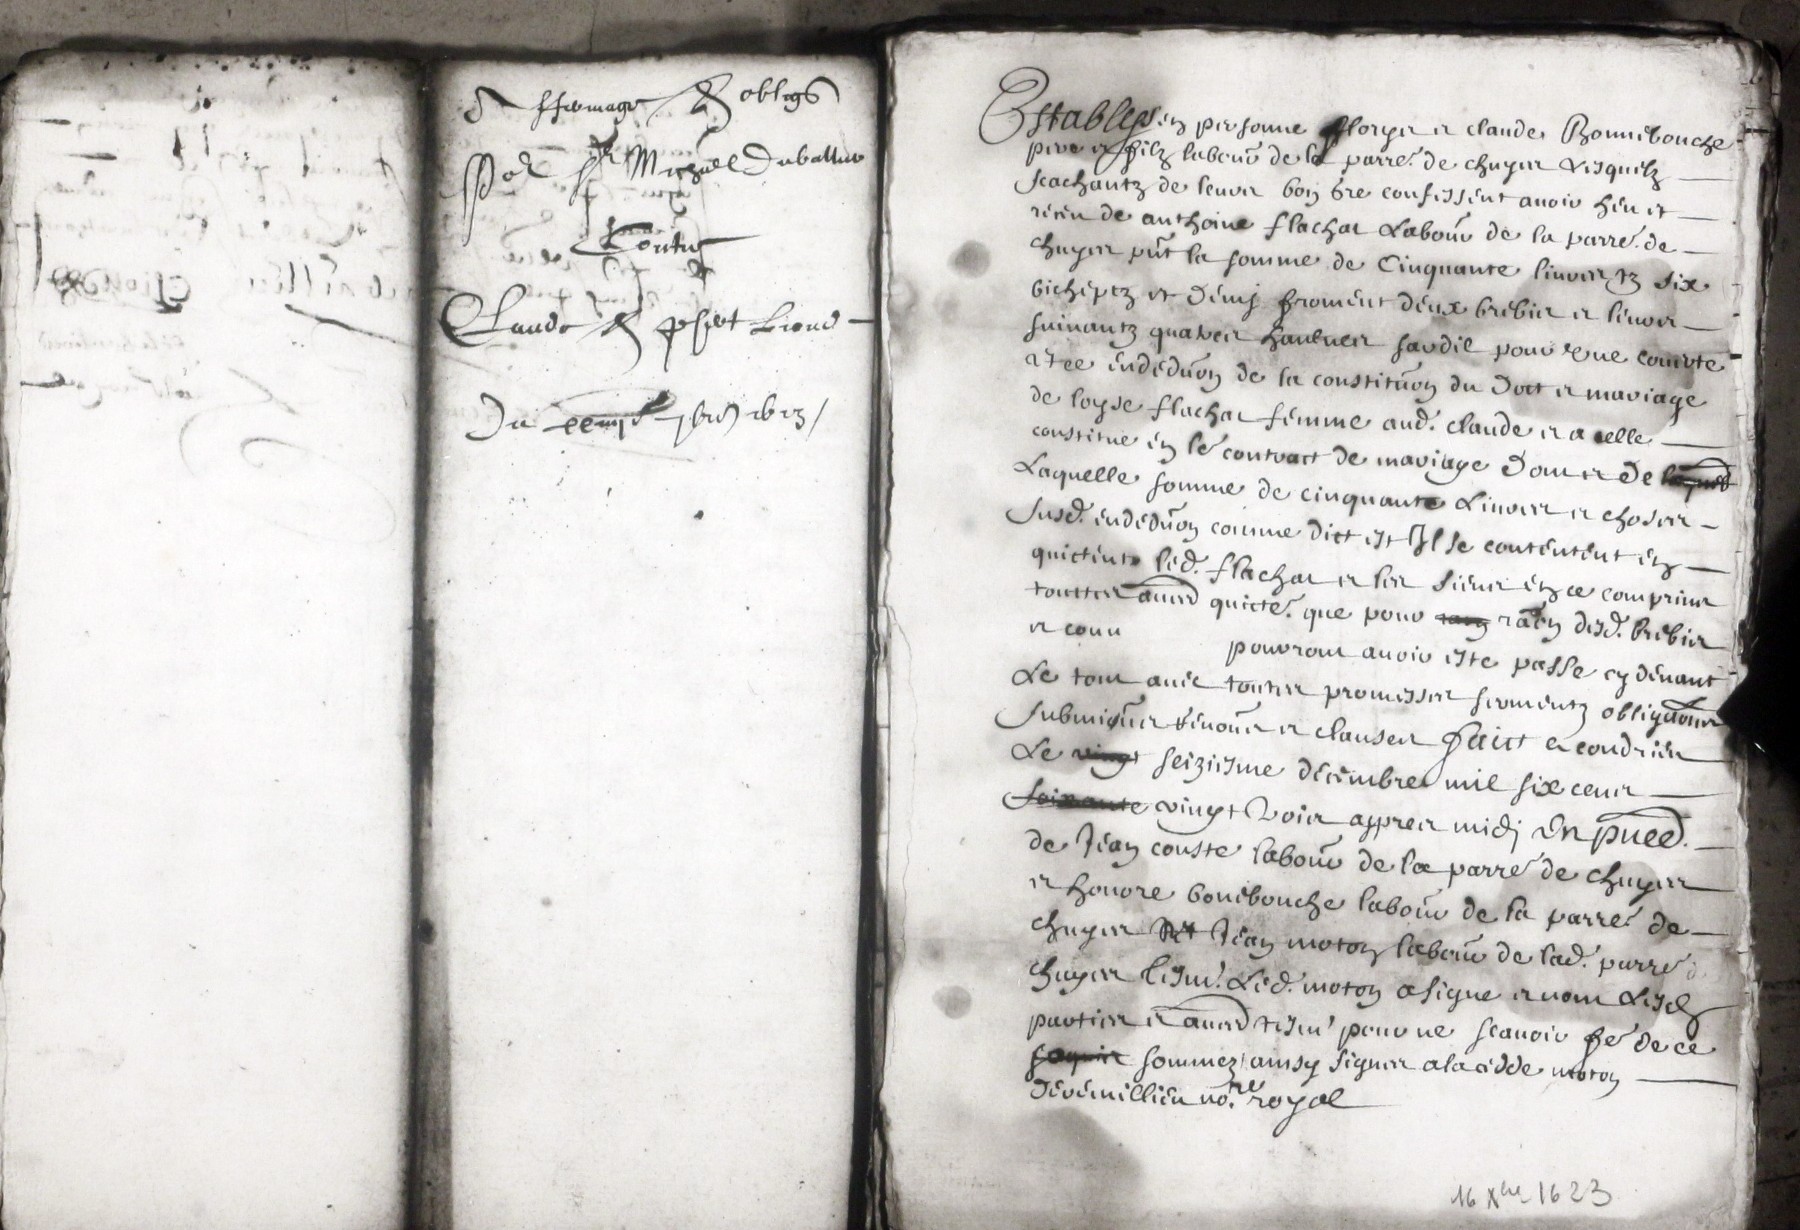 Affermage & obligõ
Pour sr Michel Duballue
Contre
Claude & Liond
Du 1623
Establys en personne Florys et claude Bonnebouche
pere et filz labour de la parre. de chuyer Lesquelz
scachantz de leurs bon gre confessent avoir heu et
receu de anthoine flachat Labour de la parre. de
chuyer pnt la somme de Cinquante livres tz six
bicheptz et demj froment deux brebis et leurs
suivantz quatres haulnes sardil pour une couverte
et ce en deduon de la constituon du doct et mariage
de loyse flachat femme aud. claude et a elle
constitue en le contract de mariage Dont et de
Laquelle somme de cinquante Livres et choses
susd. en deduon comme dict est Ilz se contentent en
quictent led. flachat et les siens en ce comprins
touttes aultres quicte. que pour raon desd. brebis
et couv pourront avoir este passe cy devant
Le tout avec toutes promesses sermentz obligaons
submiss renons et clauses faict a condrieu
Le vingt seiziesme decembre mil six cens
soixante vingt trois appres midj En pnce.
de Jean couste labour de la parre de chuyer
et honore bonebouche labour de la parre. de
chuyer Et Jean moton labour de lad. parre d
chuyer tesm. Led. moton a signe et non Lesd
parties et aultres tesm pour ne scavoir fe. de ce
sommez ainsy signes a la cedde moton
Deveuillieu nore. royal
16 Xbre 1623